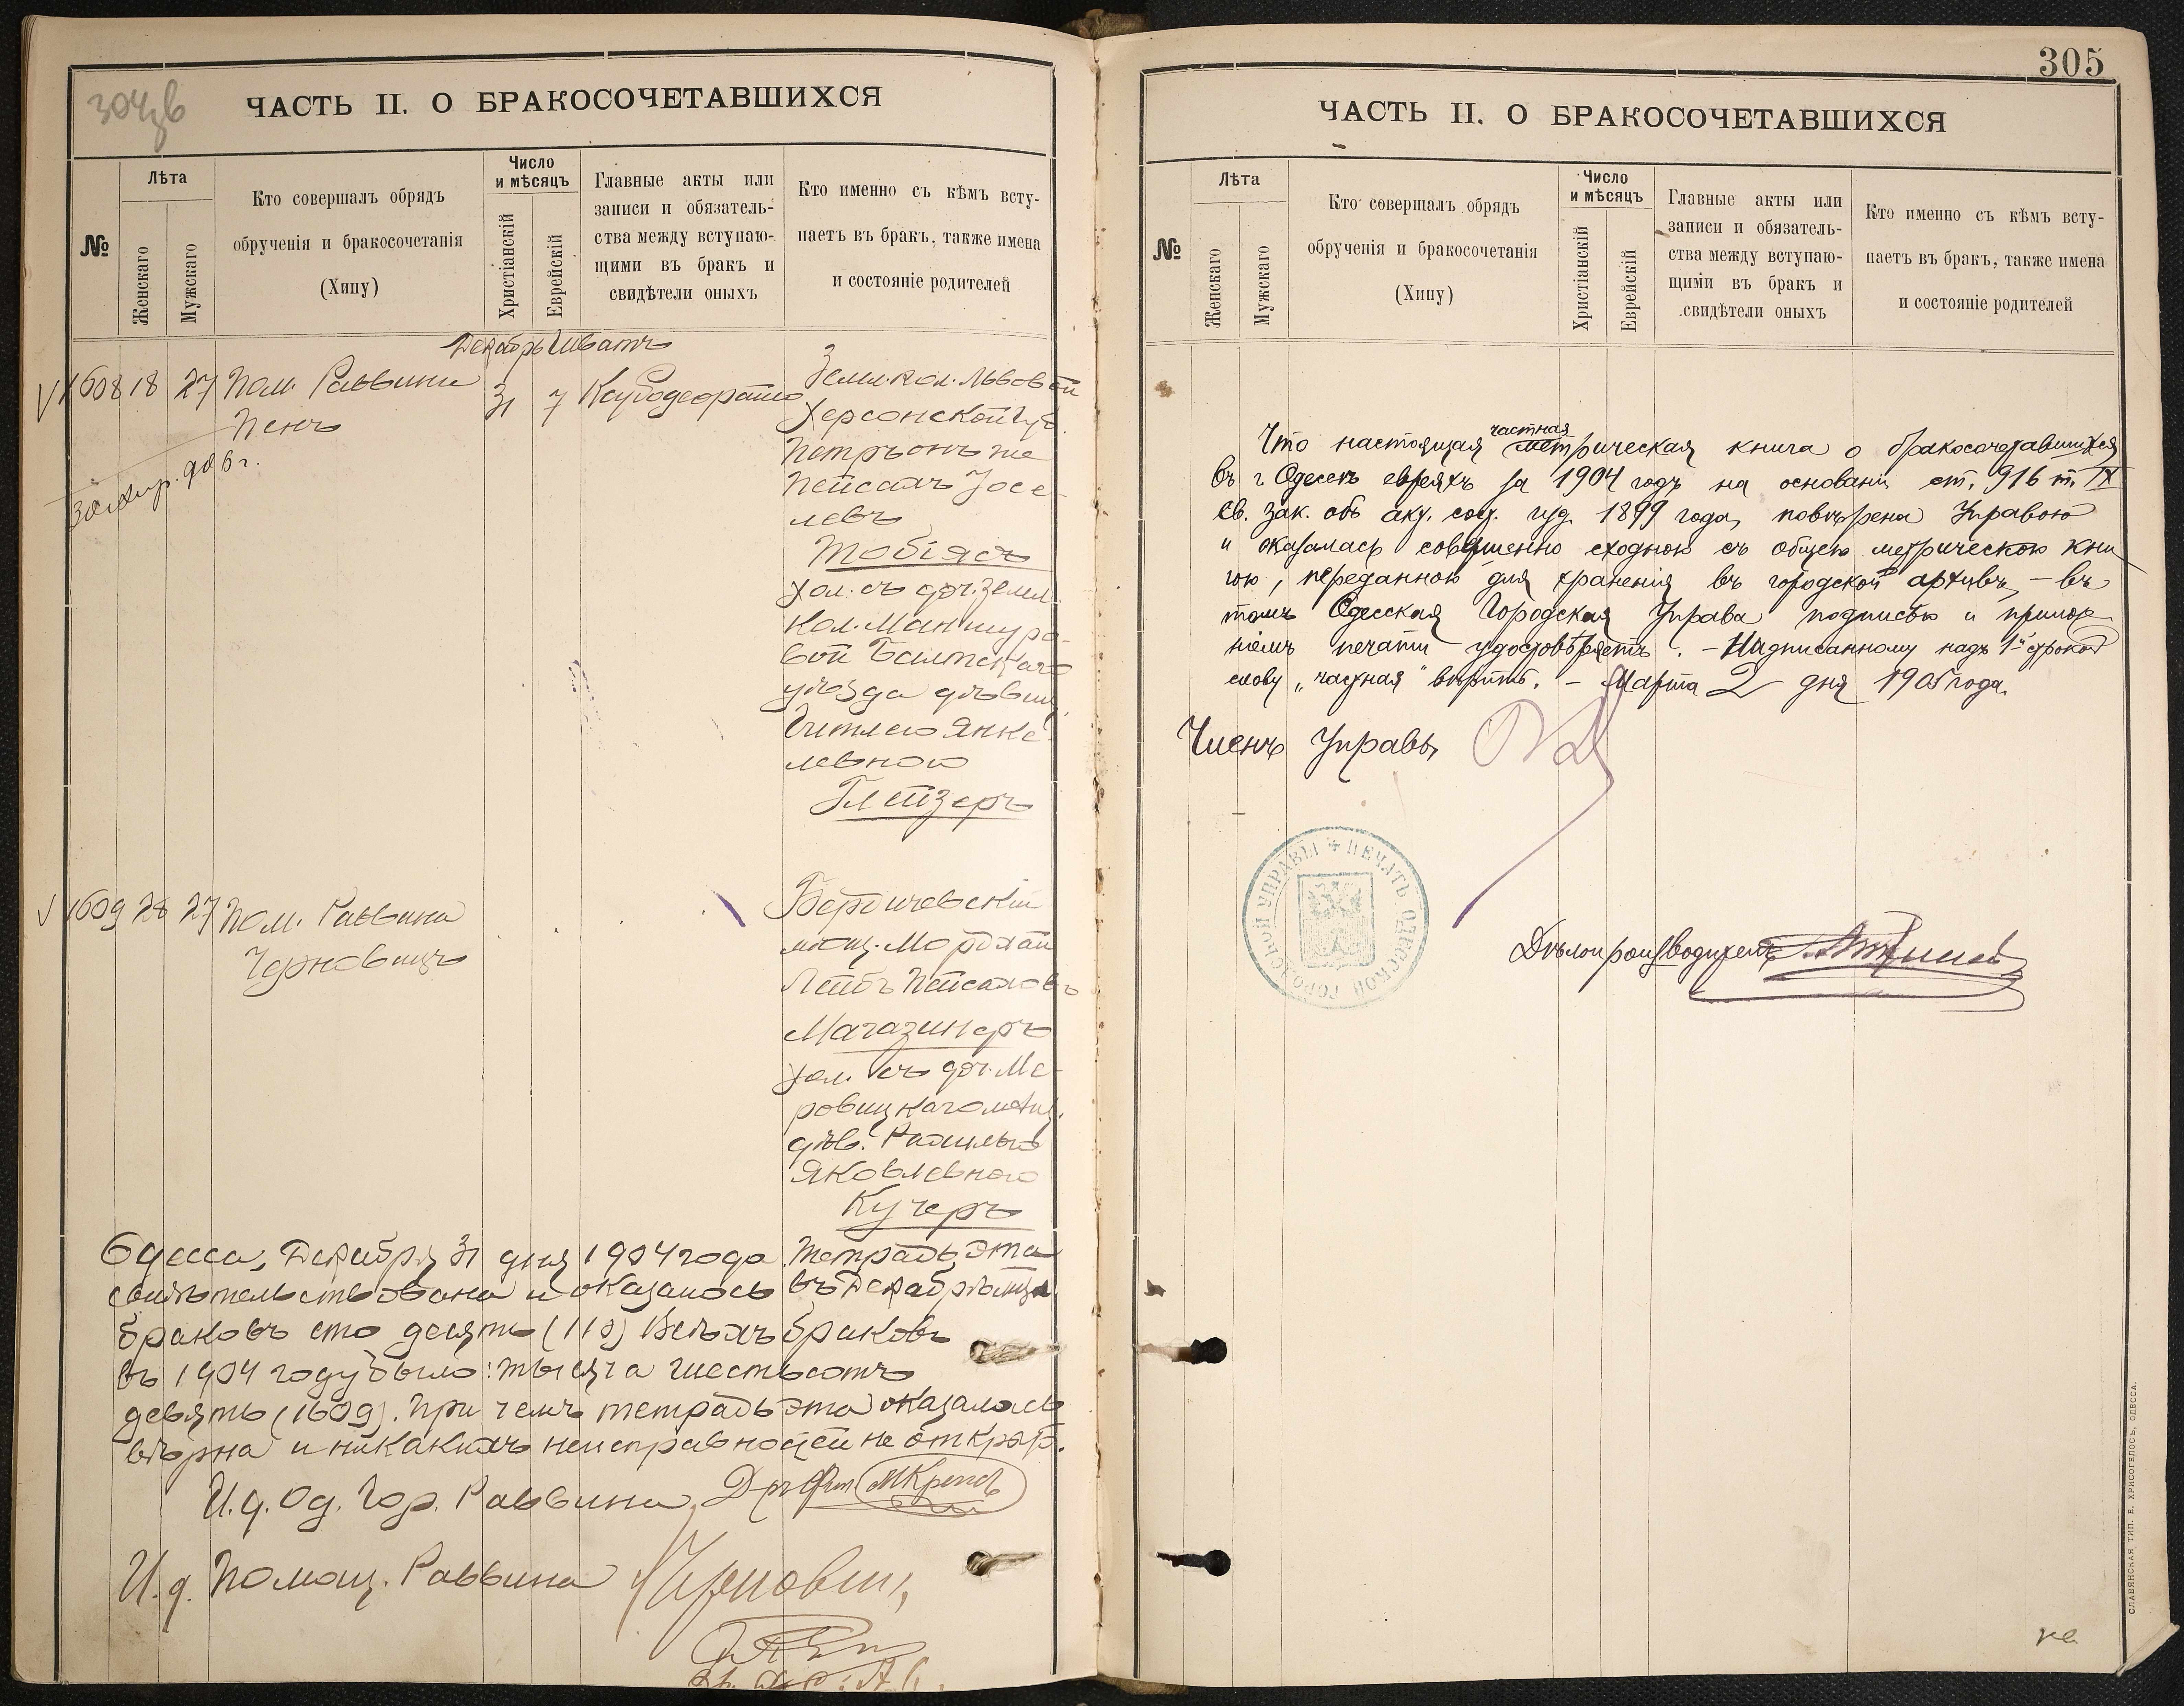 304 зв
ЧАСТЬ II. О БРАКОСОЧЕТАВШИХСЯ
№
Лѣта
Женскаго
Мужскаго
Кто совершалъ обрядъ
обрученія и бракосочетанія
(Хипу)
Число
и мѣсяцъ
Христіанскій
Еврейскій
Главные акты или
записи и обязатель-
ства между вступаю-
щими въ бракъ и
свидѣтели оныхъ
Кто именно съ кѣмъ всту-
паетъ въ бракъ, также имена
и состояніе родителей
Декабрь Шватъ
1608 18 27 Пом. Раввина
Пенъ
31 7
Земл. кол. Львовой
Херсонской губ.
Пейсахъ Іосе-
левъ
Тобіясъ
хол. съ доч. земл.
кол. Маншуро-
вой Балтскаго
уѣзда дѣвиц.
Гитлею Янке-
левною
Глейзеръ
1609 28 27 Пом. Раввина
Черновицъ
Бердичевскій
мѣщ. Мордхай
Лейбъ Пейсаховъ
Магазинеръ
хол. съ доч. Ме-
ровицкаго мѣщ.
дѣв. Рахилью
Яковлевною
Кучеръ
Одесса, Декабря 31 дня 1904 года Тетрадь эта
свидѣтельствована и оказалось въ Декабрѣ м-цѣ
браковъ сто десять (110) Всѣхъ браковъ
въ 1904 году было: тысяча шестьсотъ
девять (1609). При чемъ тетрадь эта оказалась
вѣрна и никакихъ неисправностей не открыто.
И. д. Од. Гор. Раввина
И. д. Помощ. Раввина Черновицъ
305
ЧАСТЬ II. О БРАКОСОЧЕТАВШИХСЯ
№
Лѣта
Женскаго
Мужскаго
Кто совершалъ обрядъ
обрученія и бракосочетанія
(Хипу)
Число
и мѣсяцъ
Христіанскій
Еврейскій
Главные акты или
записи и обязатель-
ства между вступаю-
щими въ бракъ и
свидѣтели оныхъ
Кто именно съ кѣмъ всту-
паетъ въ бракъ, также имена
и состояніе родителей
частная
Что настоящая метрическая книга о бракосочетавшихся
въ г. Одессѣ евреяхъ за 1904 годъ на основаніи ст. 916 т. IX
Св. Зак. объ акт. сост. изд. 1899 года, повѣрена Управою
и оказалась совершенно сходною съ общею метрическою кни
гою, переданною для храненія въ городской архивъ, – въ
томъ Одесская Городская Управа подписью и прилож
ніемъ печати удостовѣряетъ. – Надписанному надъ 1й строкой
слову „частная" вѣрить. – Марта 2 дня 1905 года.
Членъ Управы
ПЕЧАТЬ ОДЕССКОЙ ГОРОДСКОЙ УПРАВЫ
Дѣлопроизводитель
СЛАВЯНСКАЯ ТИП. Е. ХРИСОГЕЛОСЪ, ОДЕССА.